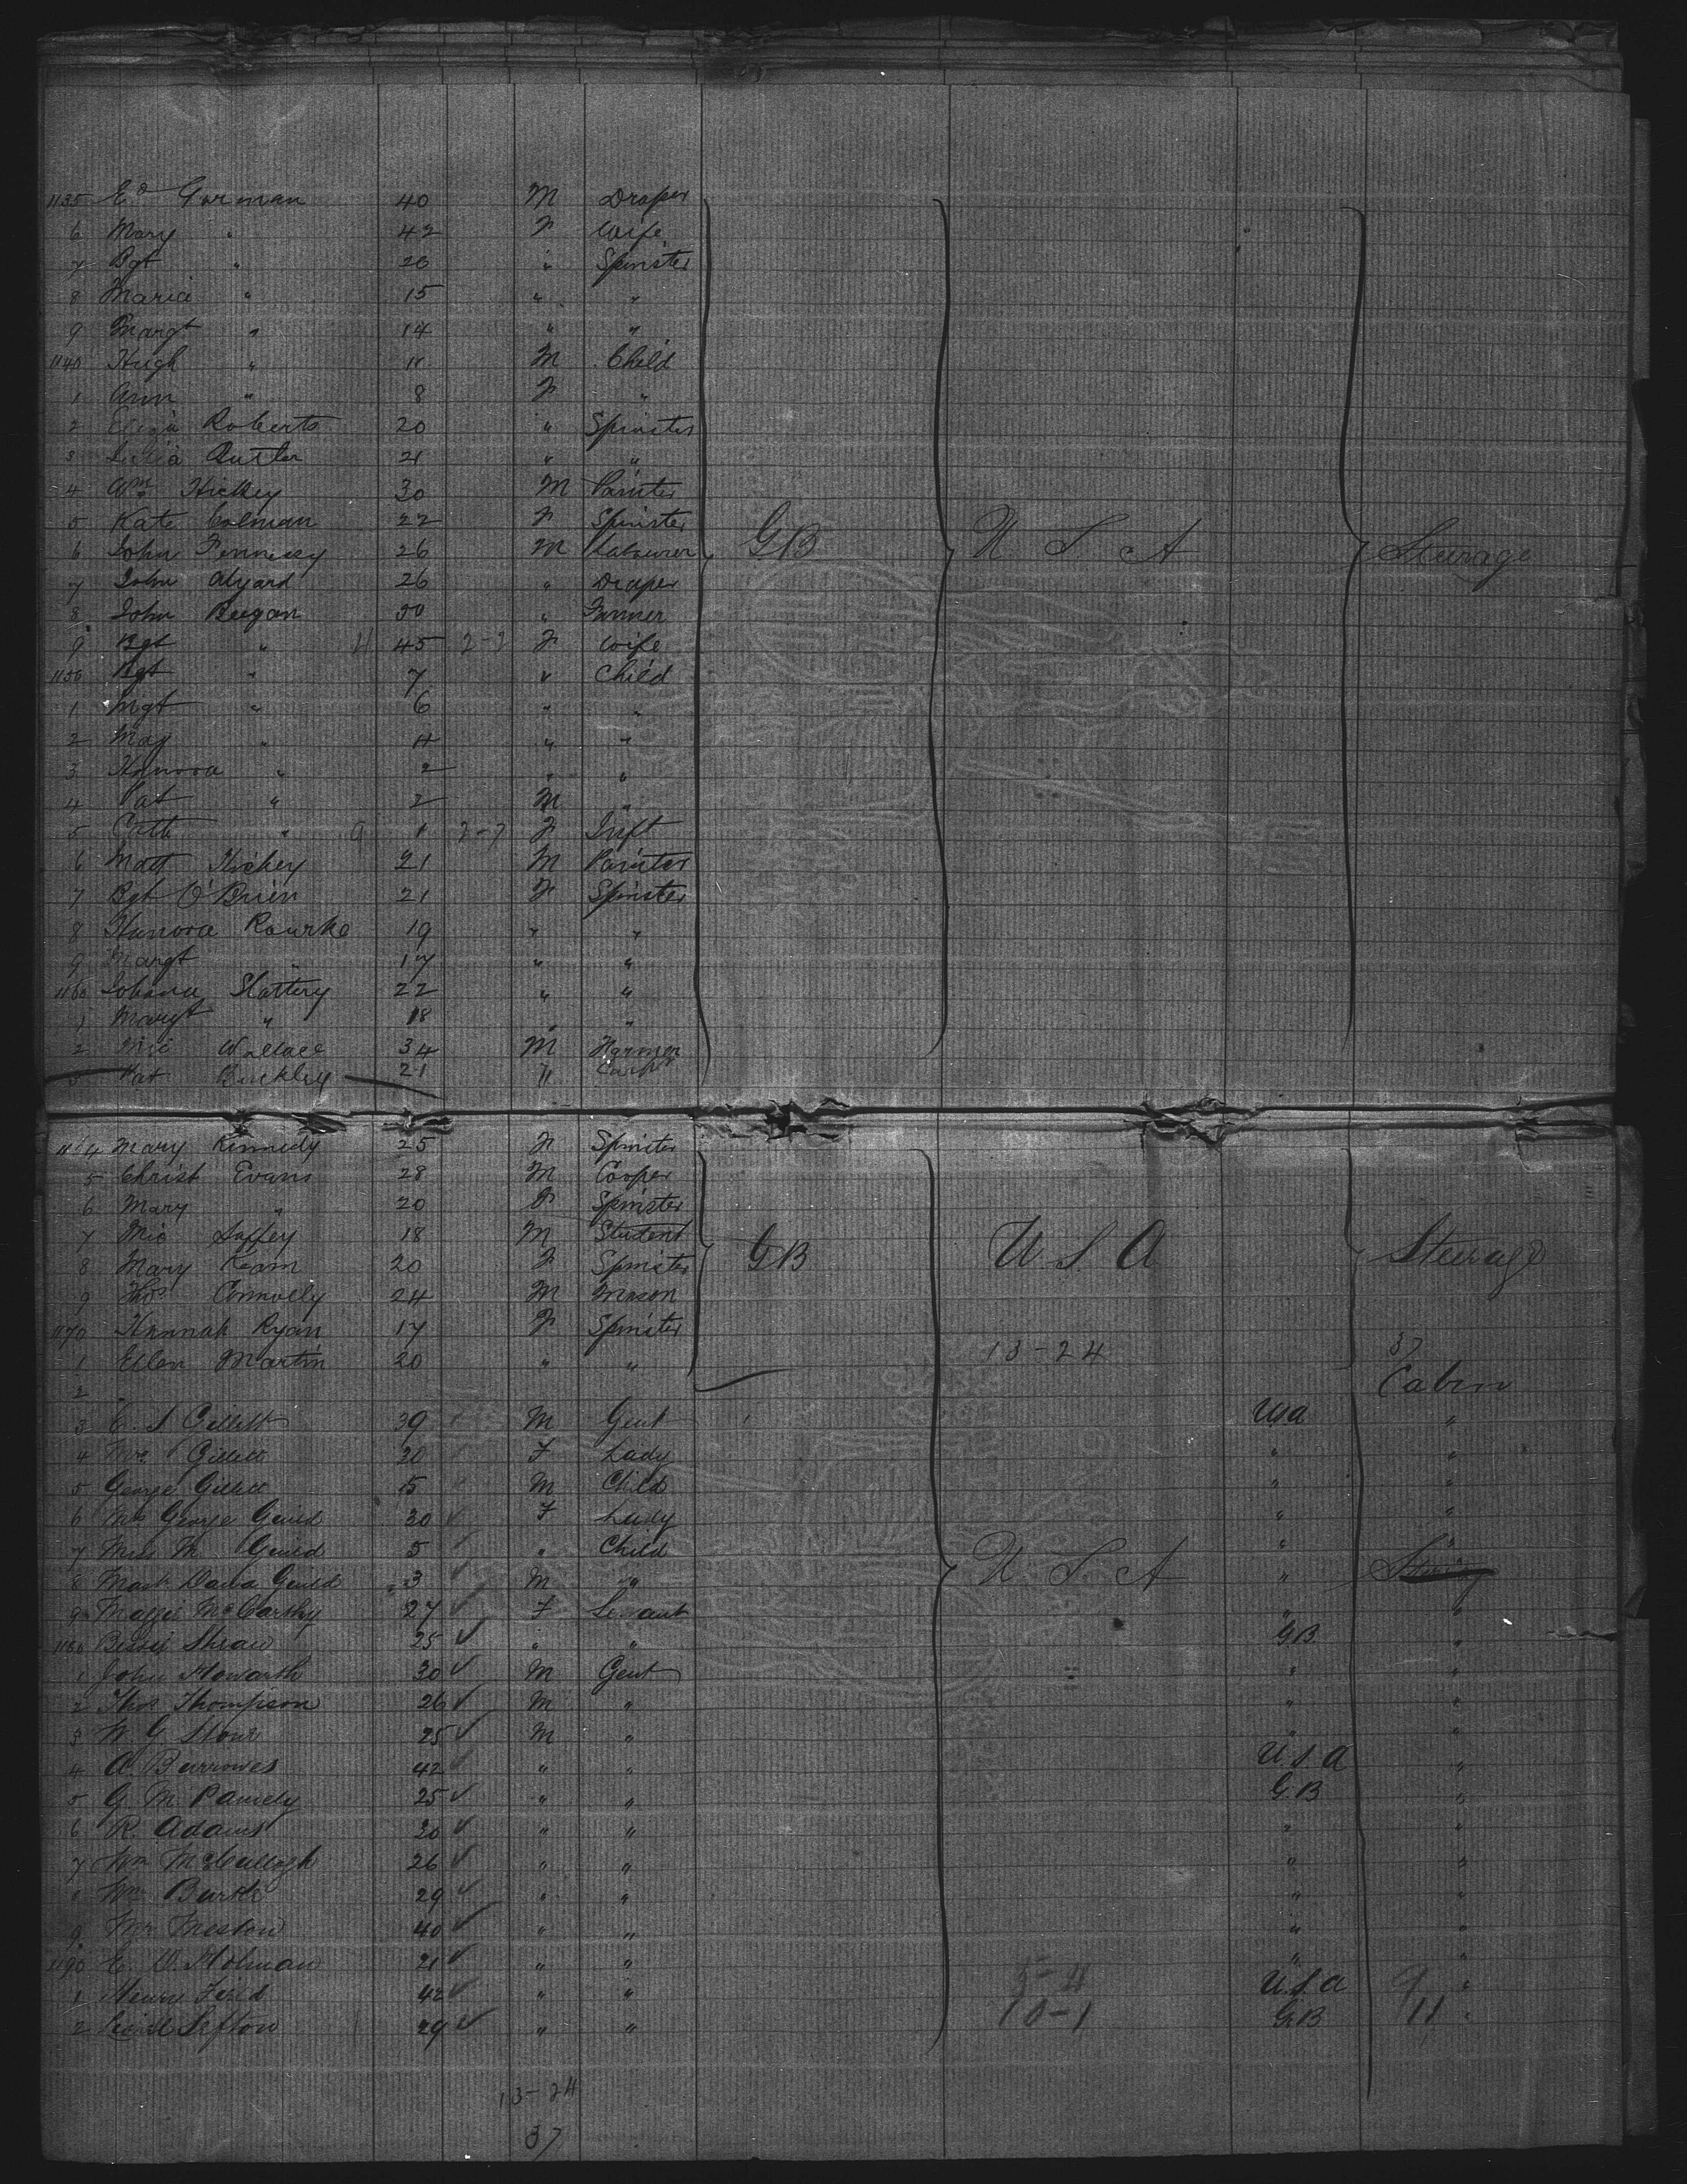 1135 Ed Gorman 40 M Draper
6 Mary " 42 F Wife
7 Bgt " 20 " Spinster
8 Maria " 15 " "
9 Margt " 14 " "
1140 Hugh " 11 M Child
1 Ann " 8 F "
2 Eliza Roberts 20 " Spinster
3 Julia Butler 21 " "
4 Wm Hickey 30 M Painter
5 Kate Colman 22 F Spinster
6 John Fennessy 26 M Labourer GB U. S. A Steerage
7 John 26 " Draper
8 John Beegan 50 " Farmer
9 Bgt " 11 45 2-2 F Wife
1150 Bgt " 7 " Child
1 Mgt " 6 " "
2 May " 4 " "
3 Honora " 2 " "
4 Pat " 2 M "
5 Cath " 9 1 2-7 F Inft
6 Matt Hickey 21 M Painter
7 Bgt O'Brien 21 F Spinster
8 Hanora Rourke 19 " "
9 Margt " 17 " "
1160 Johana Slattery 22 " "
1 Margt " 18 " "
2 Mic Wallace 34 M Farmer
3 Pat Buckley 21 " Carp
1164 Mary Kennedy 25 F Spinster
5 Christ Evans 28 M Cooper
6 Mary " 20 F Spinster
7 Mic Laffey 18 M Student
8 Mary Keam 20 F Spinster GB U S. A Steerage
9 Thos Connolly 24 M Mason
1170 Hannah Ryan 17 F Spinster
1 Ellen Martin 20 " " 13-24 37
2 Cabin
3 C. S Gillett 39 M Gent USA "
4 Mrs Gillett 30 F Lady " "
5 George Gillett 15 M Child " "
6 Mrs George Guild 30 F Lady " "
7 Miss M. Guild 5 " Child " "
8 Mastr Guild 3 M " U. S. A "
9 Maggie McCarthy 27 F Servant " "
1180 Bessie Shaw 25 " " GB "
1 John Howarth 30 M Gent " "
2 Thos Thompson 26 M " " "
3 W. G. Stone 25 M " " "
4 A. Burrowes 42 " " U.S.A "
5 G. M. Pamely 25 " " G.B "
6 R. Adams 20 " " " "
7 Wm McCullogh 26 " " " "
8 Wm Burke 29 " " " "
9 Mr Meston 40 " " " "
1190 E. O. Holman 21 " " " "
1 Henry Field 42 " " 5-4 U.S.A 9 "
2 Sefton 29 " " 10-1 G.B 11 "
13-24
37